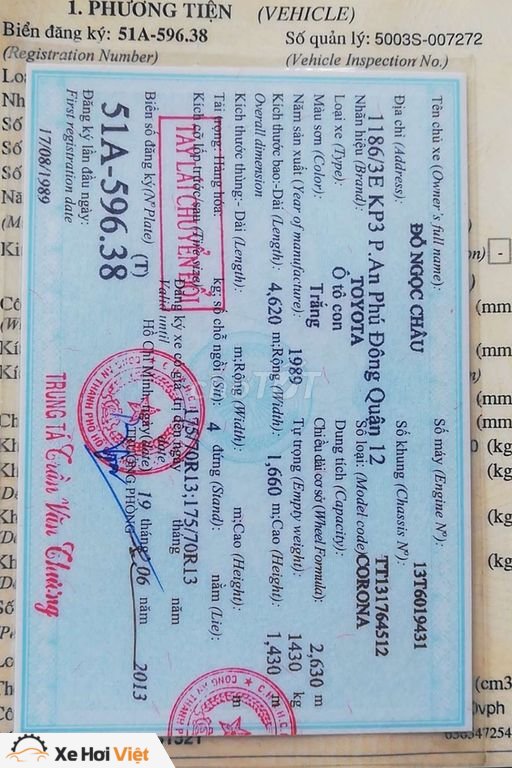 1. PHƯƠNG TIỆN (VEHICLE)
Biển đăng ký: 51A-596.38 Số quản lý: 5003S-007272
(Registration Number) (Vehicle Inspection No.)
Tên chủ xe (Owner's full name): Số máy (Engine Nº): 13T6019431
ĐỖ NGỌC CHÂU
Địa chỉ (Address): Số khung (Chassis Nº): TT131764512
1186/3E KP3 P.An Phú Đông Quận 12
Nhãn hiệu (Brand): TOYOTA Số loại: (Model code) CORONA
Loại xe (Type): Ô tô con Dung tích (Capacity):
Màu sơn (Color): Trắng Chiều dài cơ sở (Wheel Formula): 2,630 m
Năm sản xuất (Year of manufacture): 1989 Tự trọng (Empy weight): 1430 kg
Kích thước bao:-Dài (Length): 4,620 m;Rộng (Width): 1,660 m;Cao (Height): 1,430 m
Overall dimension
Kích thước thùng:- Dài (Length): m;Rộng (Width): m;Cao (Height): m
Tải trọng: Hàng hóa: kg; số chỗ ngồi (Sit): 4 đứng (Stand): nằm (Lie):
Kích cỡ lốp trước/sau (Tire size): 175/70R13;175/70R13
TAY LÁI CHUYỂN ĐỔI
Đăng ký xe có giá trị đến ngày tháng năm
Valid until date
Biển số đăng ký (NºPlate) (T)
51A-596.38
Hồ Chí Minh, ngày (date) 19 tháng 06 năm 2013
TRƯỞNG PHÒNG
Đăng ký lần đầu ngày:
First registration date
17/08/1989
TRUNG TÁ Trần Văn Thương
(mm
(mm
(kg
(kg
(kg
(kg
(cm3
Xe Hơi Việt